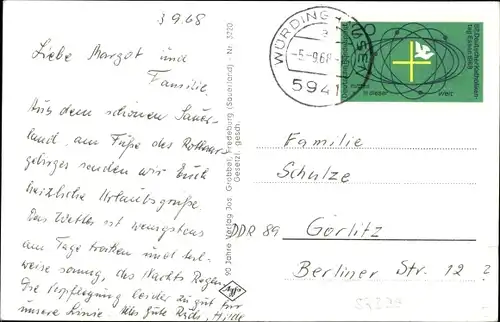 3.9.68
Liebe Margot und
Familie,
Aus dem schönen Sauer-
land, am Fuße des Rothaar-
gebirges senden wir Euch
herzliche Urlaubsgrüße.
Das Wetter ist wenigstens
am Tage trocken und teil-
weise sonnig, des Nachts Regen.
Die Verpflegung leider zu gut für
unsere Linie. Alles Gute
90 Jahre Verlag Jos. Grobbel, Fredeburg (Sauerland) - Nr. 3720
Gesetzl. gesch.
WÜRDINGHAUSEN
a
-5.-9.68
5941
Familie
Schulze
DDR 89 Görlitz
Berliner Str. 12 ?